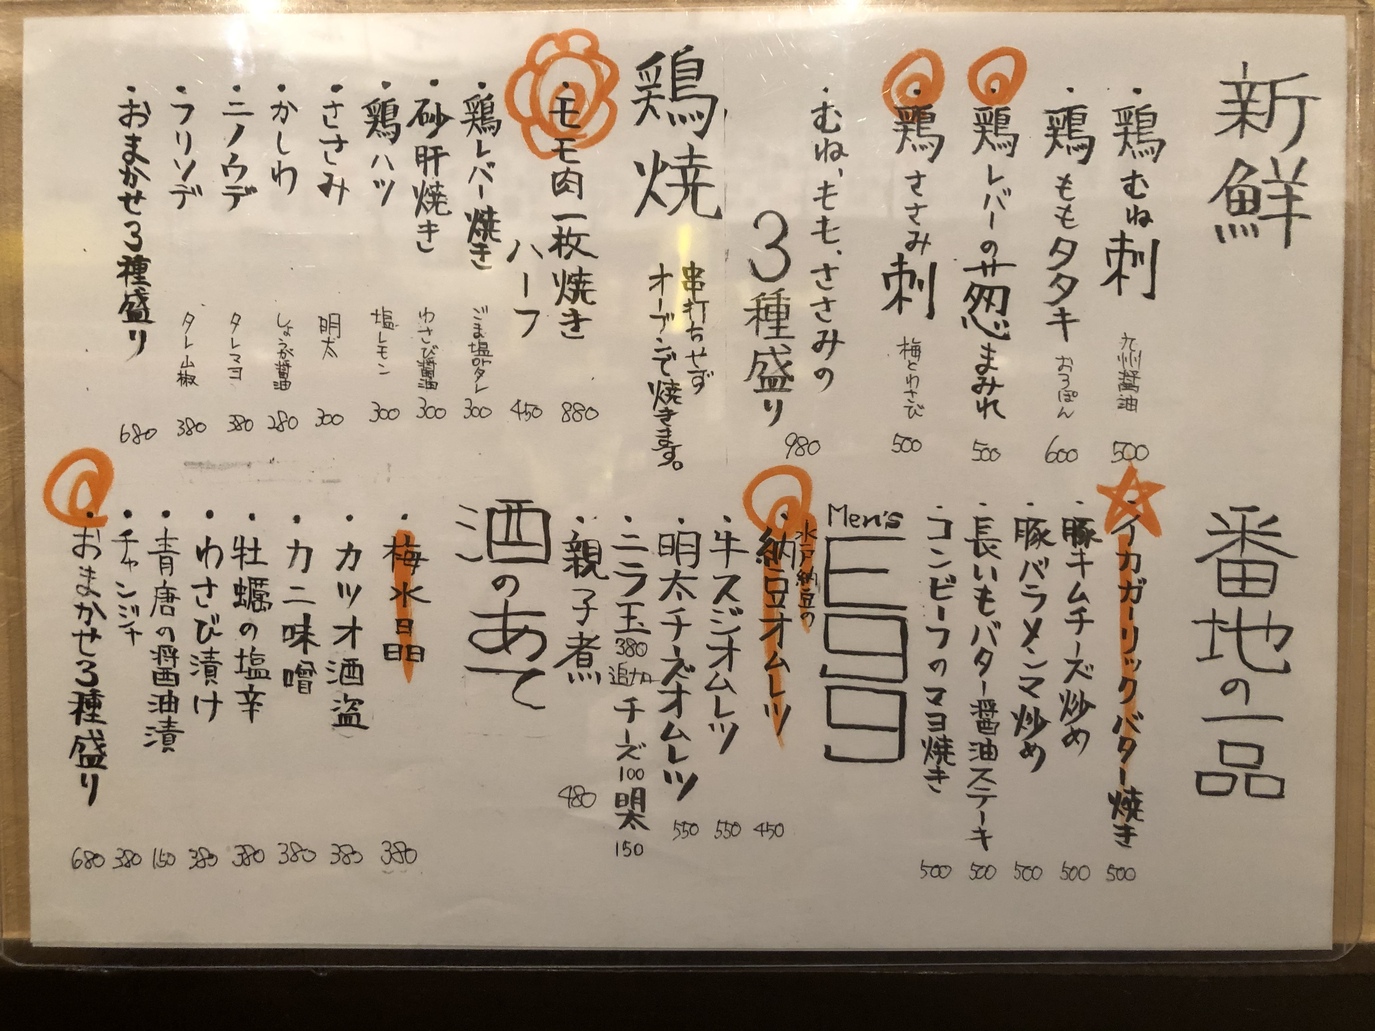 新鮮
・鶏むね刺 九州醤油 500
・鶏ももタタキ おろぽん 600
・鶏レバーの葱まみれ 500
・鶏ささみ刺 梅とわさび 500
・むね、もも、ささみの
3種盛り 980
鶏焼
串打ちせず
オーブンで焼きます。
・モモ肉一枚焼き 880
ハーフ 450
・鶏レバー焼き ごま塩orタレ 300
・砂肝焼き わさび醤油 300
・鶏ハツ 塩レモン 300
・ささみ 明太 300
・かしわ しょうが醤油 280
・ニノウデ タレマヨ 380
・フリソデ タレ山椒 380
・おまかせ3種盛り 680
番地の一品
・イカガーリックバター焼き 500
・豚キムチーズ炒め 500
・豚バラメンマ炒め 500
・長いもバター醤油ステーキ 500
・コンビーフのマヨ焼き 500
Men's
Egg
水戸納豆の
・納豆オムレツ 450
・牛スジオムレツ 550
・明太チーズオムレツ 550
・ニラ玉 380 追加 チーズ 100 明太 150
・親子煮 480
酒のあて
・梅水晶 380
・カツオ酒盗 380
・カニ味噌 380
・牡蠣の塩辛 380
・わさび漬け 380
・青唐の醤油漬 150
・チャンジャ 380
・おまかせ3種盛り 680